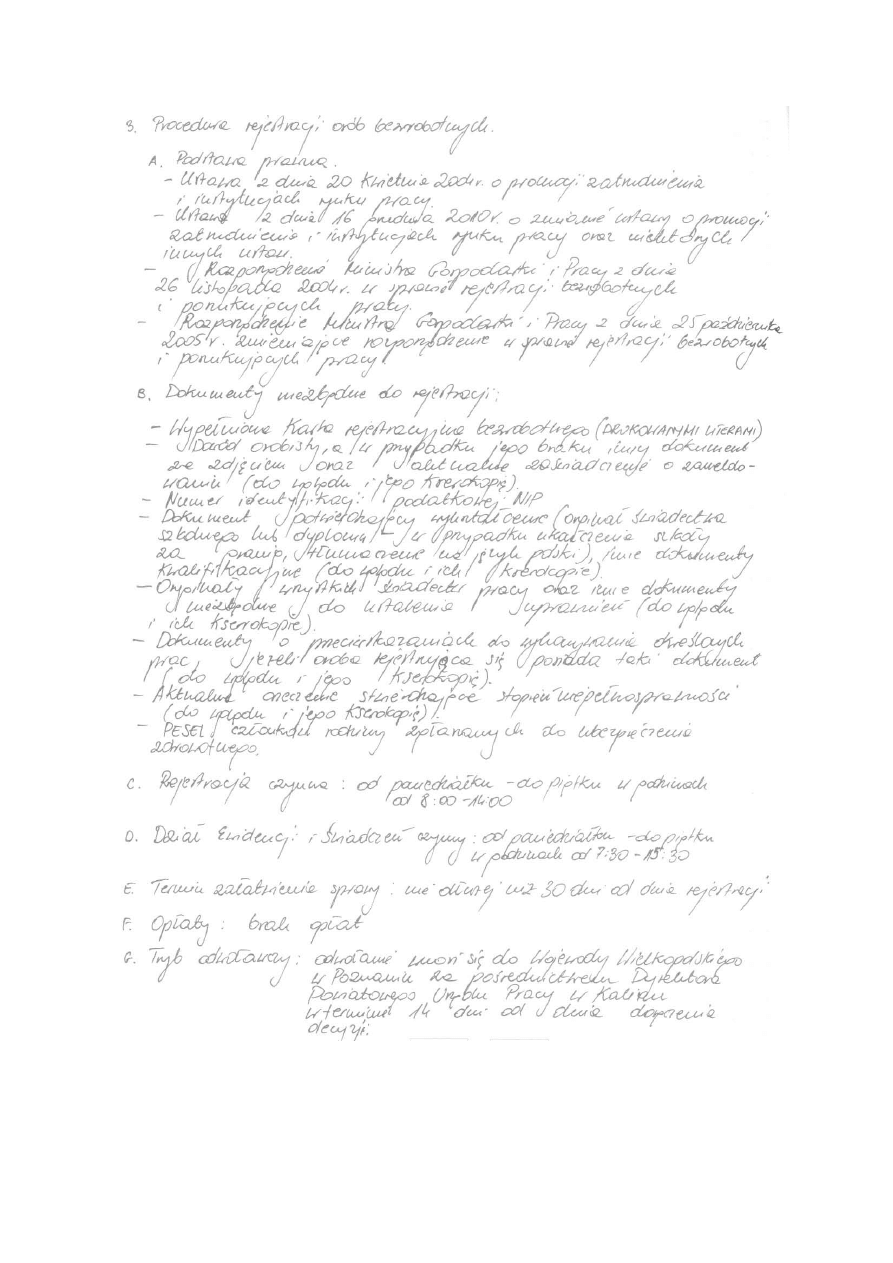 3. Procedura rejestracji osób bezrobotnych.
A. Podstawa prawna.
- Ustawa z dnia 20 kwietnia 2004r. o promocji zatrudnienia
i instytucjach rynku pracy.
- Ustawa z dnia 16 grudnia 2010r. o zmianie ustawy o promocji
zatrudnienia i instytucjach rynku pracy oraz niektórych
innych ustaw.
- Rozporządzenie Ministra Gospodarki i Pracy z dnia
26 listopada 2004r. w sprawie rejestracji bezrobotnych
i poszukujących pracy.
- Rozporządzenie Ministra Gospodarki i Pracy z dnia 25 października
2005r. zmieniające rozporządzenie w sprawie rejestracji bezrobotnych
i poszukujących pracy
B. Dokumenty niezbędne do rejestracji:
- Wypełniona Karta rejestracyjna bezrobotnego (DRUKOWANYMI LITERAMI)
- Dowód osobisty, a w przypadku jego braku inny dokument
ze zdjęciem oraz aktualne zaświadczenie o zameldo-
waniu (do wglądu i jego kserokopię).
- Numer identyfikacji podatkowej NIP
- Dokument potwierdzający wykształcenie (oryginał świadectwa
szkolnego lub dyplomu - w przypadku ukończenia szkoły
za granicą, tłumaczenie na język polski), inne dokumenty
kwalifikacyjne (do wglądu i ich kserokopie).
- Oryginały wszystkich świadectw pracy oraz inne dokumenty
niezbędne do ustalenia uprawnień (do wglądu
i ich kserokopie).
- Dokumenty o przeciwskazaniach do wykonywania określonych
prac, jeżeli osoba rejestrująca się posiada taki dokument
(do wglądu i jego kserokopię).
- Aktualne orzeczenie stwierdzające stopień niepełnosprawności
(do wglądu i jego kserokopię).
- PESEL członków rodziny zgłaszanych do ubezpieczenia
zdrowotnego.
C. Rejestracja czynna: od poniedziałku - do piątku w godzinach
od 8:00 - 14:00
D. Dział Ewidencji i Świadczeń czynny: od poniedziałku - do piątku
w godzinach od 7:30 - 15:30
E. Termin załatwienia sprawy: nie dłużej niż 30 dni od dnia rejestracji
F. Opłaty: brak opłat
G. Tryb odwoławczy: odwołanie wnosi się do Wojewody Wielkopolskiego
w Poznaniu za pośrednictwem Dyrektora
Powiatowego Urzędu Pracy w Kaliszu
w terminie 14 dni od dnia doręczenia
decyzji.